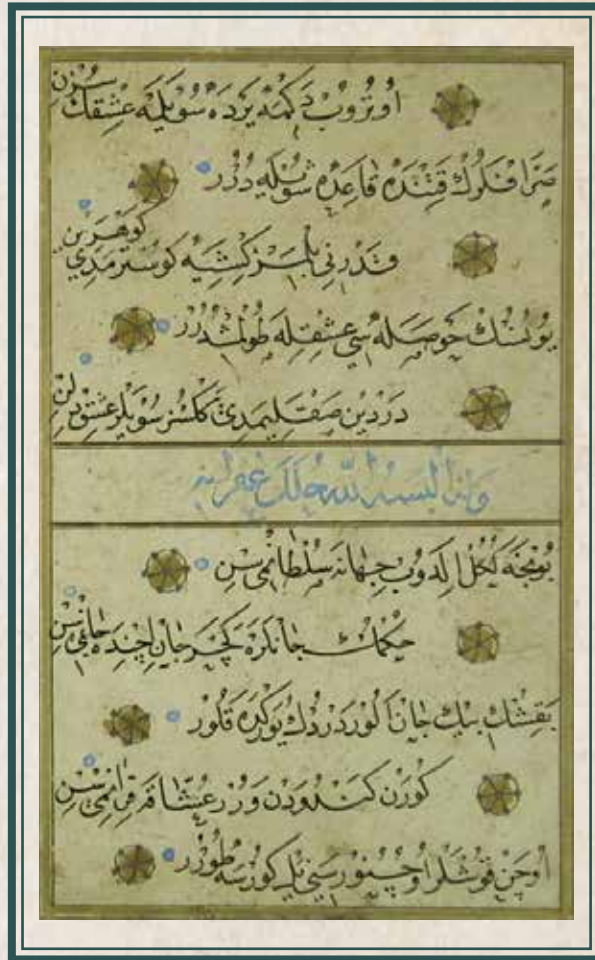 اوتروب دكمه يرده سويليه عشقك سوزن
صرافلرك قتنده قاعده شويله درر
قدرني بلمز كشيه كوسترمدي كوهرين
يونسك حوصله سي عشقله طولمشدرر
دردين صقليمدي اكلسز سويلر عشق
الله
بونجه ككل الدوب جهانه سلطانميسن
حكمك جانلره كچر جان اچنده جانميسن
بقشك بيك جان الور دردك يوركده قلور
كورن كندودن ورر عشاقه
اوچن قوشلر سني بر كورسه طورر